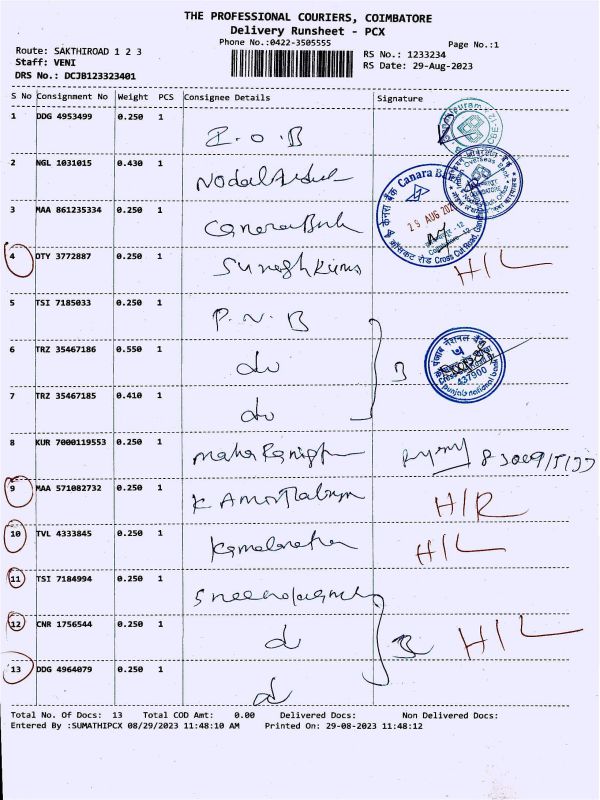 THE PROFESSIONAL COURIERS, COIMBATORE
Delivery Runsheet - PCX
Phone No.:0422-3505555
Page No.:1
Route: SAKTHIROAD 1 2 3
RS No.: 1233234
Staff: VENI
RS Date: 29-Aug-2023
DRS No.: DCJB123323401
S No Consignment No Weight PCS Consignee Details Signature
1 DDG 4953499 0.250 1 I.O.B
2 NGL 1031015 0.430 1 Nodal
3 MAA 861235334 0.250 1 Canara Bank
केनरा बैंक Canara Bank
29 AUG 2023
Cross Cut Road
Indian Overseas Bank
4 DTY 3772887 0.250 1 H/L
5 TSI 7185033 0.250 1 P.N.B
6 TRZ 35467186 0.550 1 do 3
पंजाब नैशनल बैंक
437900
punjab national bank
7 TRZ 35467185 0.410 1 do
8 KUR 7000119553 0.250 1
9 MAA 571082732 0.250 1 H/R
10 TVL 4333845 0.250 1 H/L
11 TSI 7184994 0.250 1
12 CNR 1756544 0.250 1 d 3 H/L
13 DDG 4964079 0.250 1 d
Total No. Of Docs: 13 Total COD Amt: 0.00 Delivered Docs: Non Delivered Docs:
Entered By :SUMATHIPCX 08/29/2023 11:48:10 AM Printed On: 29-08-2023 11:48:12